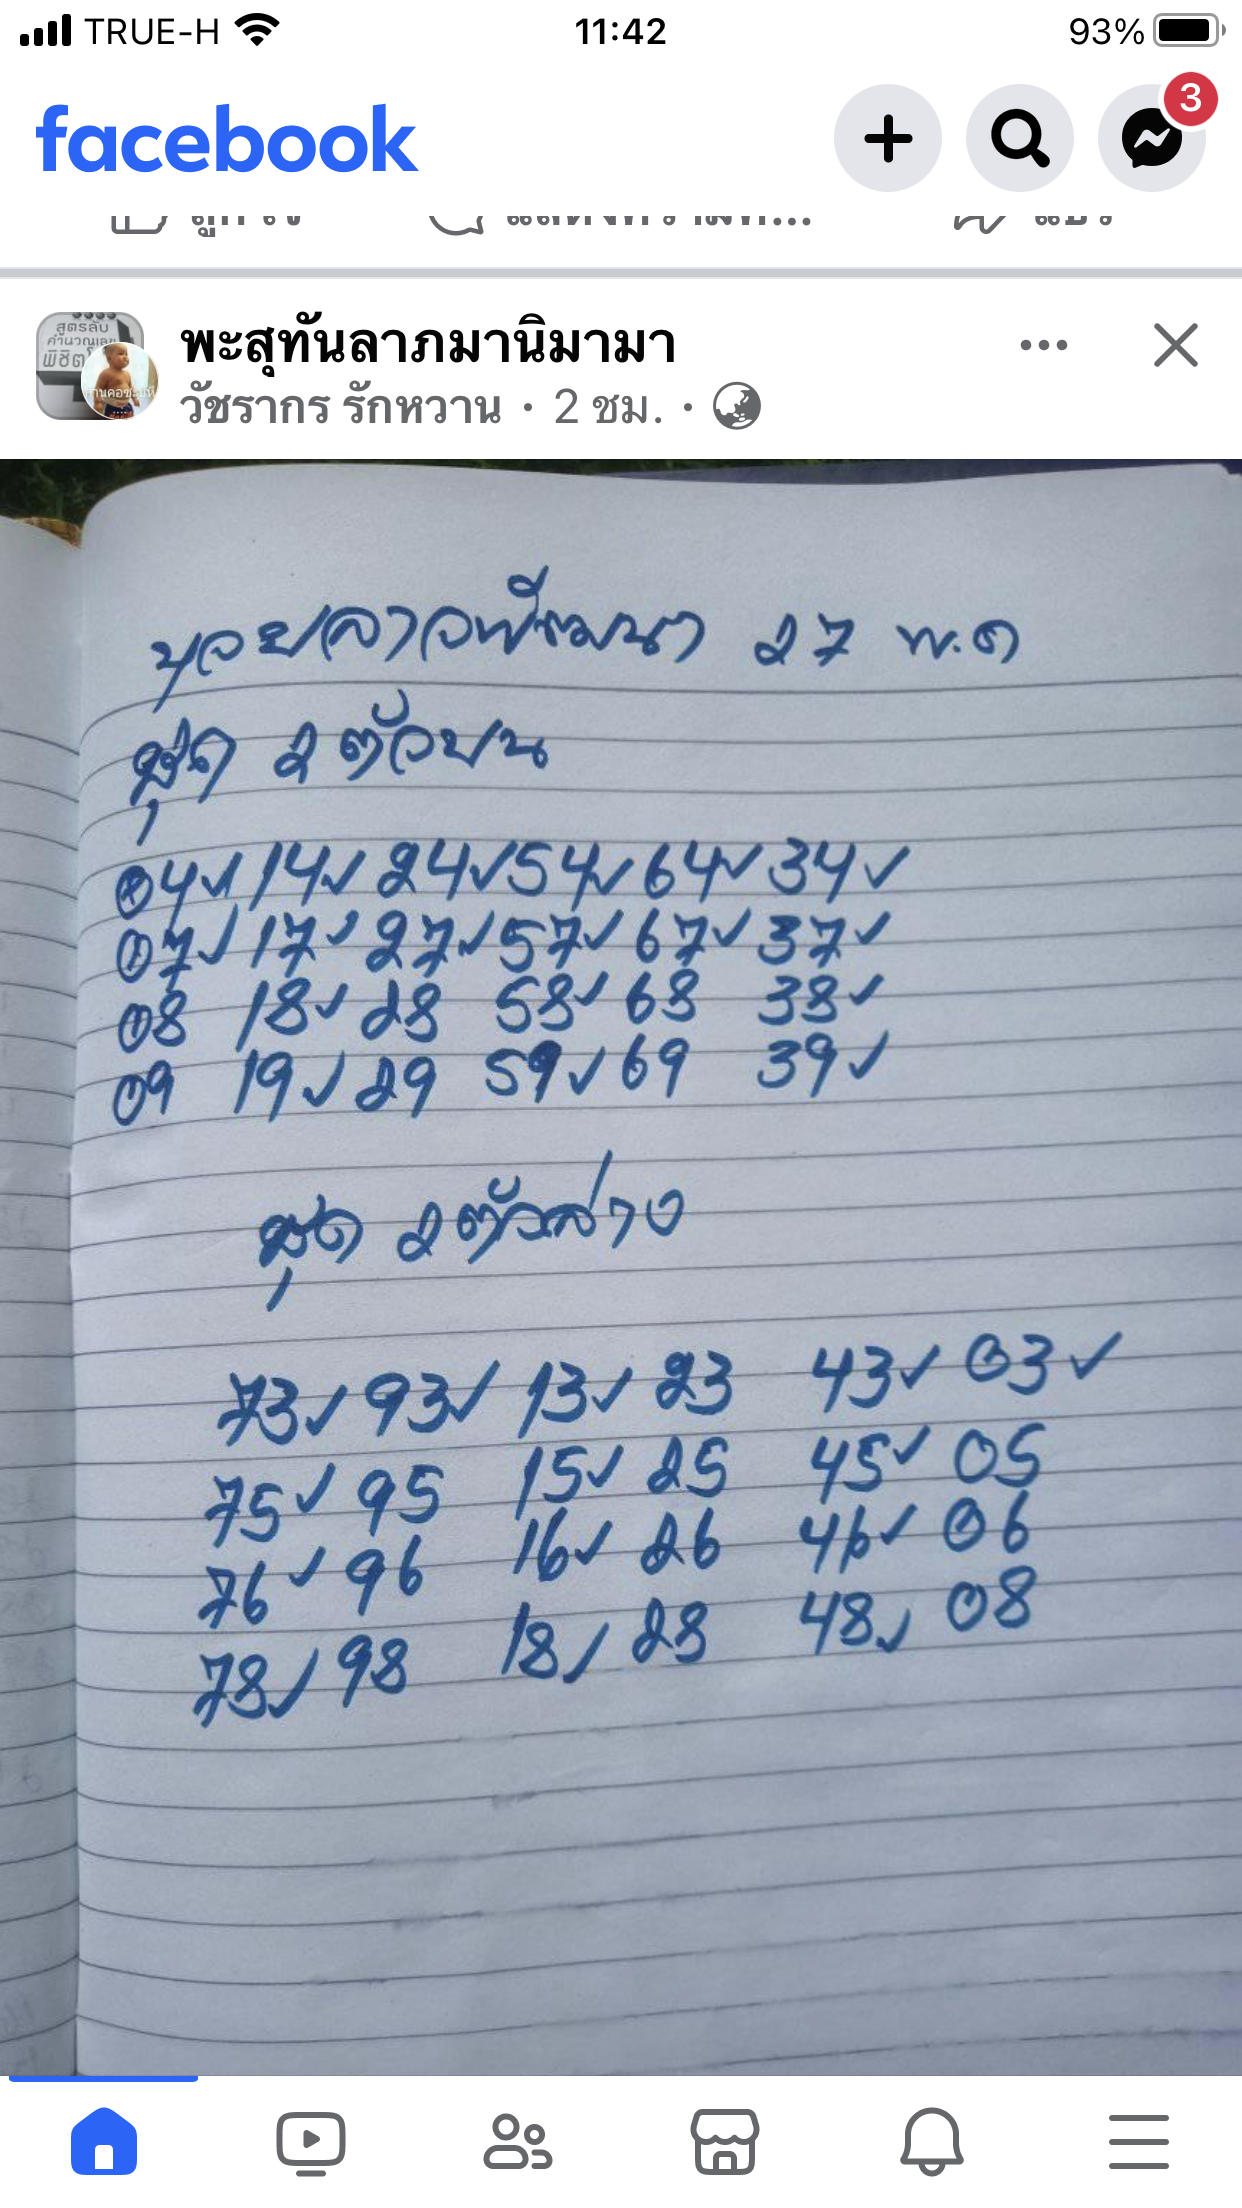 TRUE-H 11:42 93%
facebook 3
พะสุทันลาภมานิมามา
วัชรากร รักหวาน · 2 ชม. ·
สูตรลับ
คำนวณเลข
หวยลาวพัฒนา 27 พ.ค
ชุด 2 ตัวบน
04✓ 14✓ 24✓ 54✓ 64✓ 34✓
07✓ 17✓ 27✓ 57✓ 67✓ 37✓
08 18✓ 28 58✓ 68 38✓
09 19✓ 29 59✓ 69 39✓
ชุด 2 ตัวล่าง
73✓ 93✓ 13✓ 23 43✓ 03✓
75✓ 95 15✓ 25 45✓ 05
76✓ 96 16✓ 26 46✓ 06
78✓ 98 18✓ 28 48✓ 08